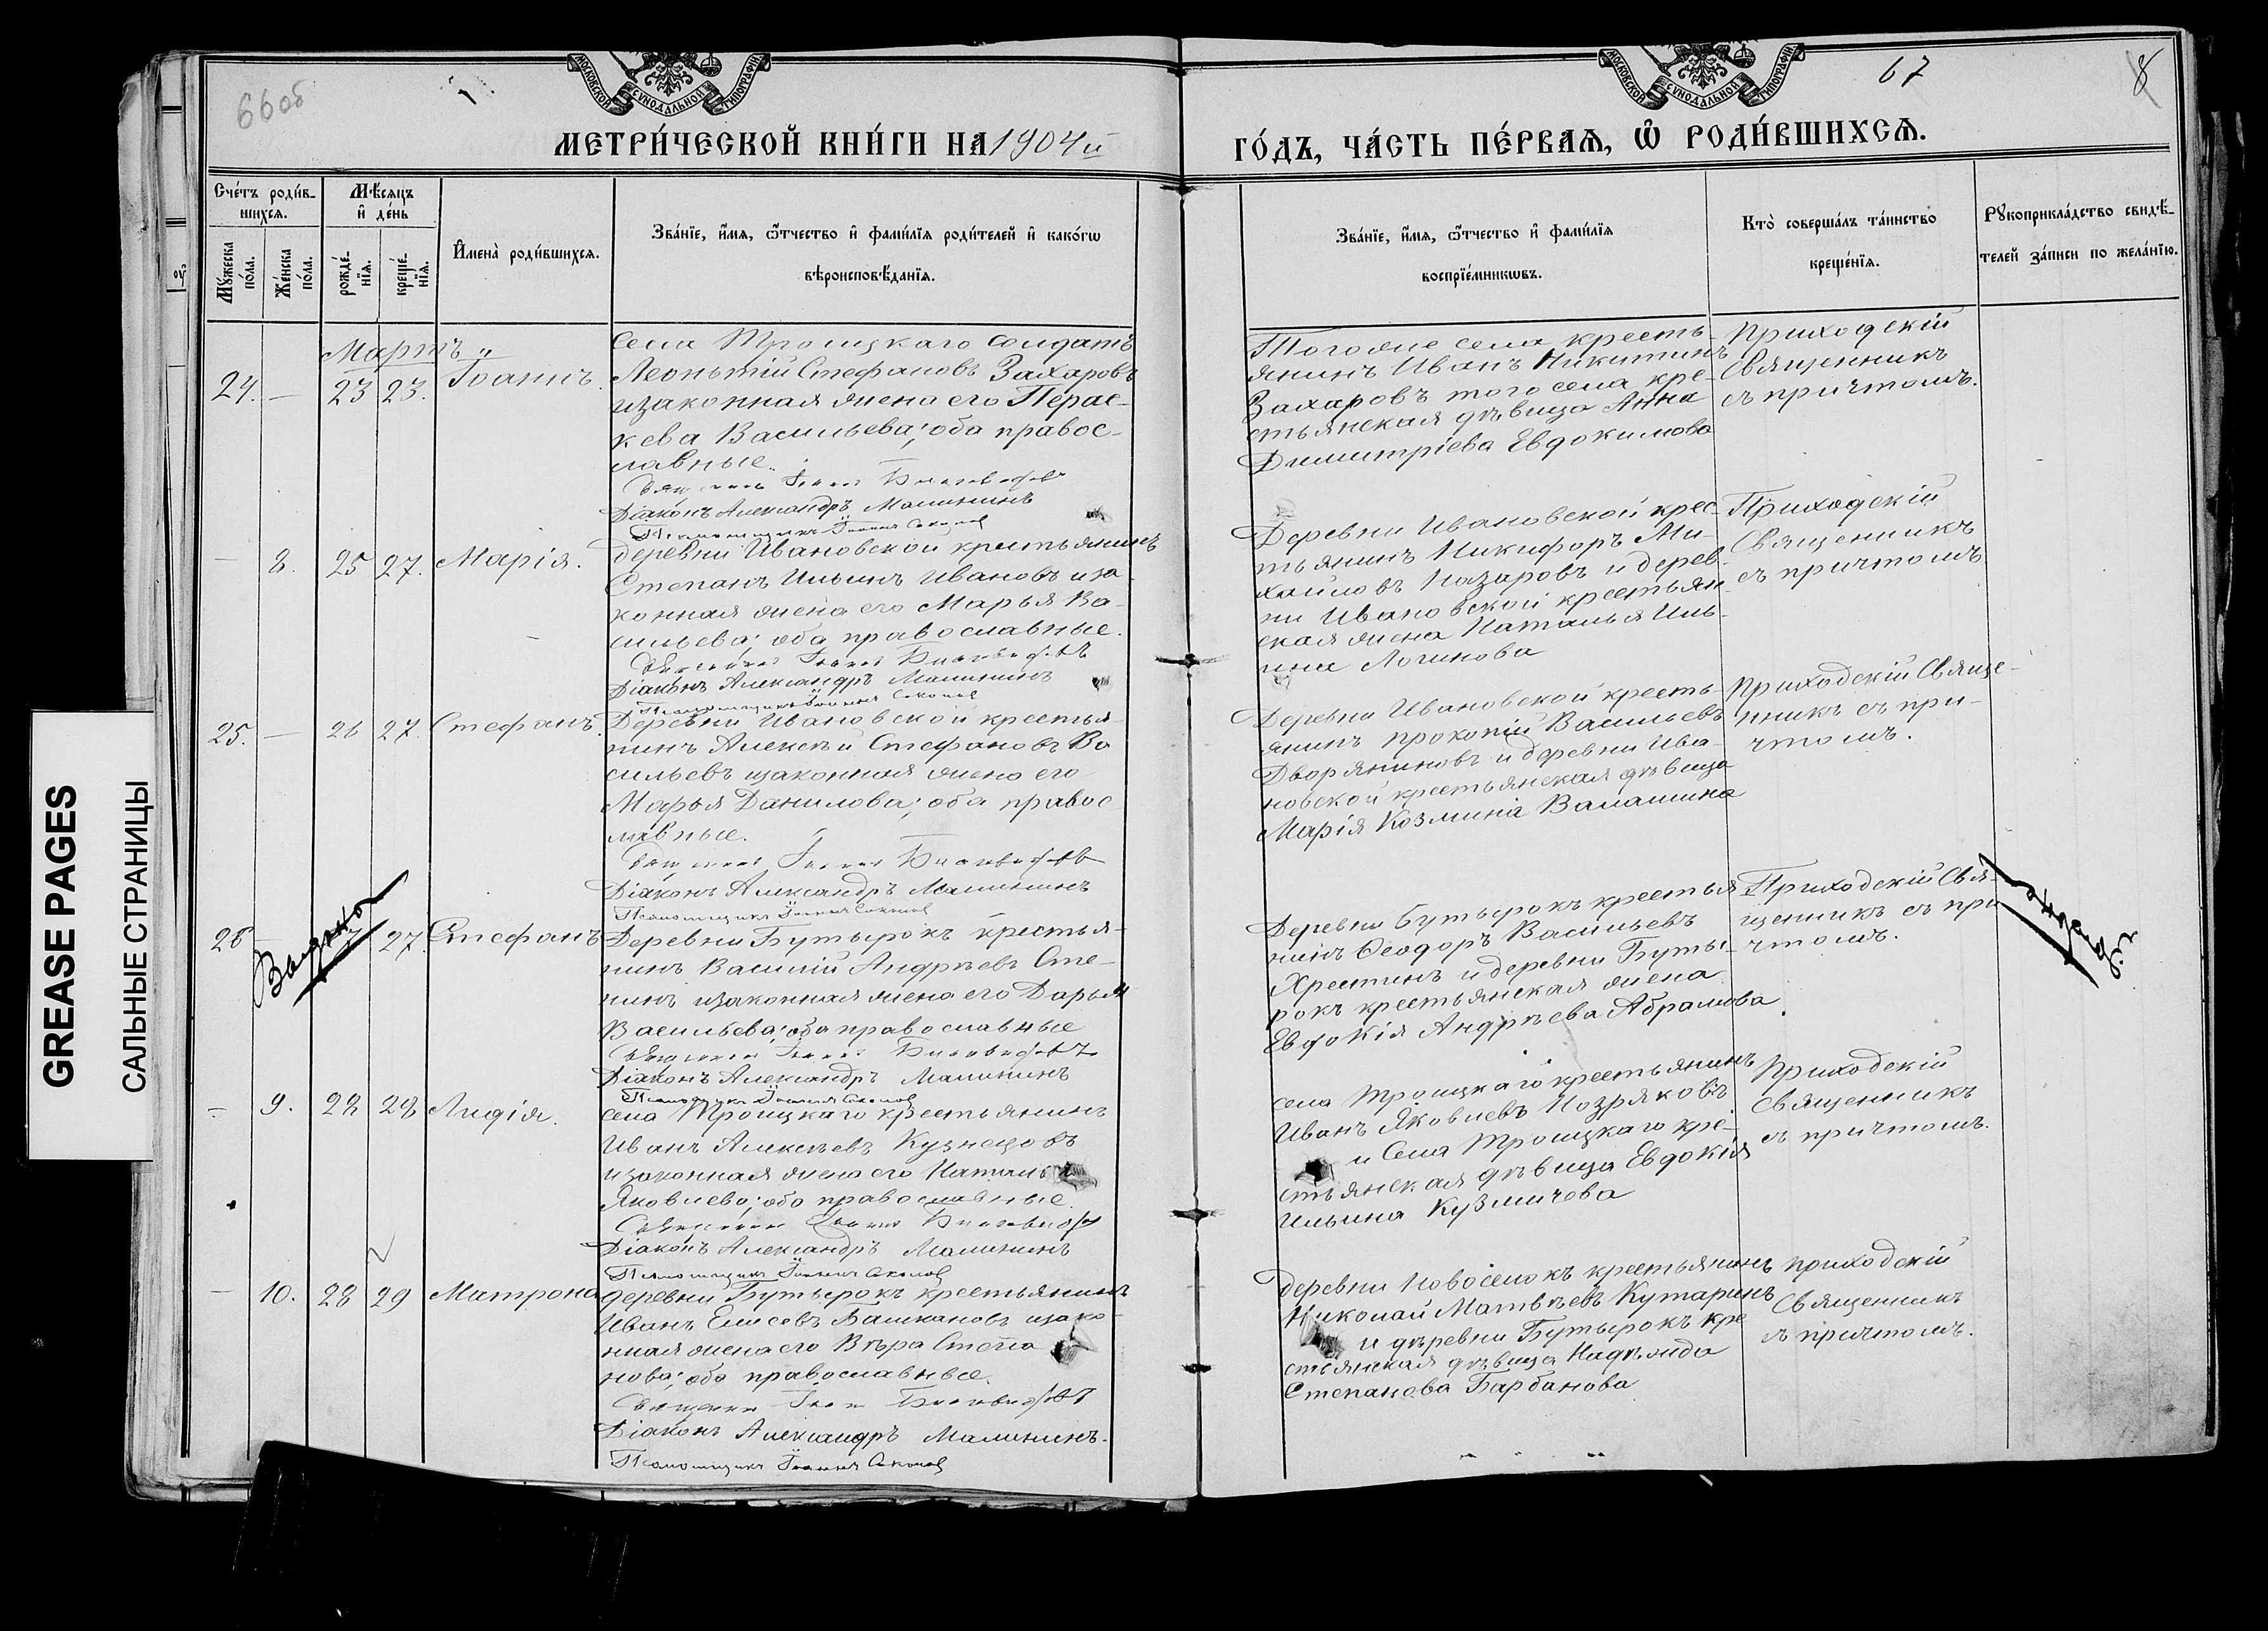 66об
67
8
МОСКОВСКОЙ СѴНОДАЛЬНОЙ ТИПОГРАФІИ
МОСКОВСКОЙ СѴНОДАЛЬНОЙ ТИПОГРАФІИ
МЕТРИ́ЧЕСКОЙ КНИ́ГИ НА 1904й
ГО́ДЪ, ЧА́СТЬ ПЕ́РВАѦ, Ѡ҆ РОДИ́ВШИХСѦ.
Сче́тъ роди́в-
шихсѧ.
Мꙋ́жеска по́ла.
Же́нска по́ла.
Мѣ́сѧцъ
и҆ де́нь
рожде́-
нїѧ.
креще́-
нїѧ.
И҆мена̀ роди́вшихсѧ.
Зва́нїе, и҆́мѧ, ѻ҆́тчество и҆ фами́лїѧ роди́телей и҆ како́гѡ
вѣроисповѣ́данїѧ.
Зва́нїе, и҆́мѧ, ѻ҆́тчество и҆ фами́лїѧ
воспрїе́мникѡвъ.
Кто̀ соверша́лъ та́инство
креще́нїѧ.
Рꙋкоприкла́дство свидѣ́-
телей за́писи по жела́нїю.
Мартъ
24. — 23 23. Іоаннъ.
Села Троицкаго солдатъ
Леонтій Стефановъ Захаровъ
изаконная жена его Перас-
кева Васильева; оба правос-
лавные.
Діаконъ Александръ Малининъ
Псаломщикъ Іоаннъ Соколов
Тогоже села кресть-
янинъ Иванъ Никитинъ
Захаровъ того села кре-
стьянская дѣвица Анна
Димитріева Евдокимова
Приходскій
Священникъ
съ причтомъ.
— 8. 25 27. Марія.
деревни Ивановской крестьянинъ
Степанъ Ильинъ Ивановъ иза-
конная жена его Марья Ва-
сильева; оба православные.
Діаконъ Александръ Малининъ
Псаломщикъ Іоаннъ Соколов
Деревни Ивановской крес-
тьянинъ Никифоръ Ми-
хайловъ Назаровъ и дерев-
ни Ивановской крестьян-
ская жена Наталья Иль-
ина Логинова
Приходскій
Священникъ
съ причтомъ
25. — 26 27. Стефанъ.
Деревни Ивановской крестья-
нинъ Алексѣй Стефановъ Ва
сильевъ изаконная жена его
Марья Данилова; оба правос
лавные.
Діаконъ Александръ Малининъ
Псаломщикъ Іоаннъ Соколов
Деревни Ивановской кресть-
янинъ Прокопій Васильевъ
Дворяниновъ и деревни Ива-
новской крестьянская дѣвица
Марія Козмина Валашина
Приходскій Свяще-
нникъ съ при-
чтомъ.
26 — 27. Стефанъ
Деревни Бутырокъ крестья-
нинъ Василій Андрѣевъ Сте-
нинъ изаконная жена его Дарья
Васильева; оба православные
Діаконъ Александръ Малининъ
Псаломщикъ Іоаннъ Соколов
Деревни Бутырокъ крестья
нинъ Ѳеодоръ Васильевъ
Хрестинъ и деревни Буты-
рокъ крестьянская жена
Евдокія Андрѣева Абрамова
Приходскій Свя-
щенникъ съ при
чтомъ.
— 9. 28 28 Лидія.
села Троицкаго крестьянинъ
Иванъ Алексѣевъ Кузнецовъ
изаконная жена его Наталья
Яковлева; оба православные.
Діаконъ Александръ Малининъ
Псаломщикъ Іоаннъ Соколов
села Троицкаго крестьянинъ
Иванъ Яковлевъ Ноздряковъ
и Села Троицкаго кре-
стьянская дѣвица Евдокія
Ильина Кузмичова
Приходскій
Священникъ
съ причтомъ.
— 10. 28 29 Матрона
деревни Бутырокъ крестьянинъ
Иванъ Елисеевъ Башкановъ изако-
нная жена его Вѣра Степа
нова; оба православные.
Діаконъ Александръ Малининъ.
Псаломщикъ Іоаннъ Соколов
деревни Новоселокъ крестьянинъ
Николай Матвѣевъ Кутаринъ
и деревни Бутырокъ кре
стьянская дѣвица Надѣжда
Степанова Барбанова
приходскій
Священникъ
съ причтомъ.
GREASE PAGES
САЛЬНЫЕ СТРАНИЦЫ